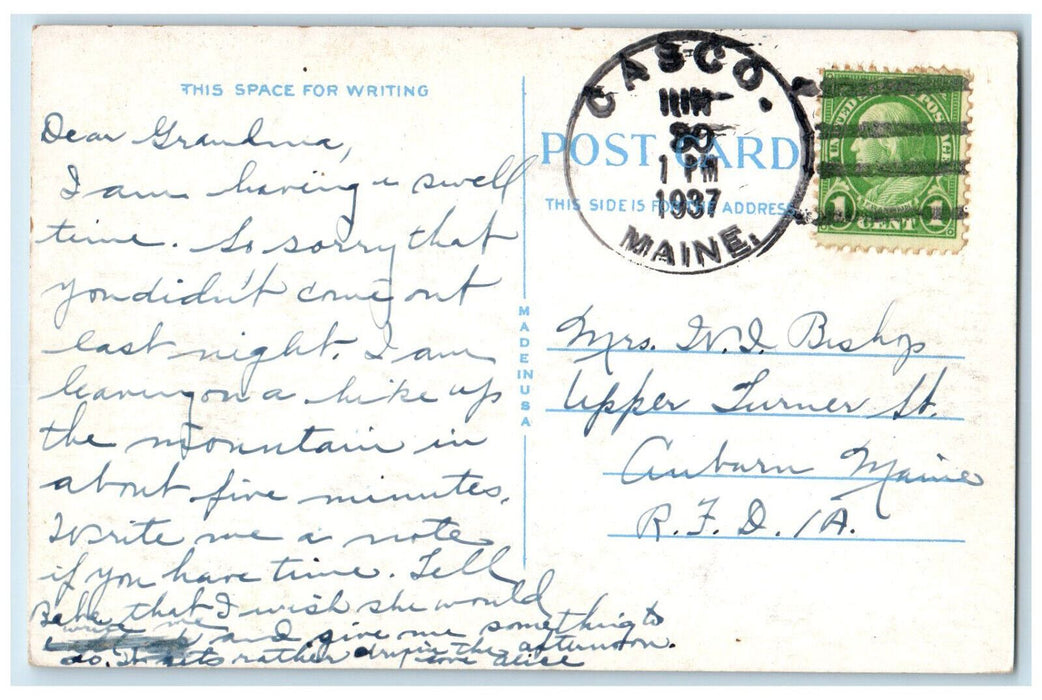 THIS SPACE FOR WRITING
Dear Grandma,
I am having a swell
time. So sorry that
you didn't come out
last night. I am
leaving on a hike up
the mountain in
about five minutes.
Write me a note
if you have time. Tell
Babe that I wish she would
write me and give me something to
do. It gets rather dry in the afternoon.
Love Alice
MADE IN USA
POST CARD
THIS SIDE IS FOR THE ADDRESS
CASCO.
JUN
1 PM
1937
MAINE.
UNITED STATES POSTAGE
1 CENT 1
Mrs. W. I. Bishop
Upper Turner St.
Auburn Maine
R. F. D. 1A.